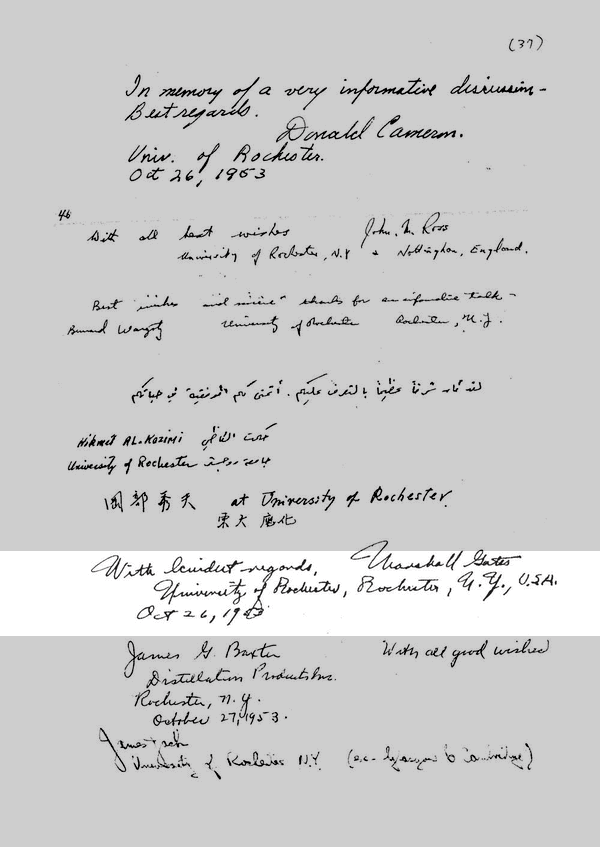 (37)
In memory of a very informative discussion -
Best regards.
Donald Cameron.
Univ. of Rochester.
Oct 26, 1953
46
With all best wishes John. M. Ross
University of Rochester, N.Y & Nottingham, England.
Best wishes and sincere thanks for an informative talk -
University of Rochester Rochester, N.Y.
لقد نلت شرفا عظيما بالتعرف عليكم. أتمنى لكم الموفقية في حياتكم
Hikmet AL-Kozimi حكمت
University of Rochester جامعة
岡部 at University of Rochester.
東大 応化
With kindest regards, Marshall Gates
University of Rochester, Rochester, N.Y., U.S.A.
Oct 26, 1953
James G. Baxter With all good wishes
Distillation Products Inc.
Rochester, N.Y.
October 27, 1953.
James
University of Rochester N.Y. (ex - Glasgow & Cambridge)